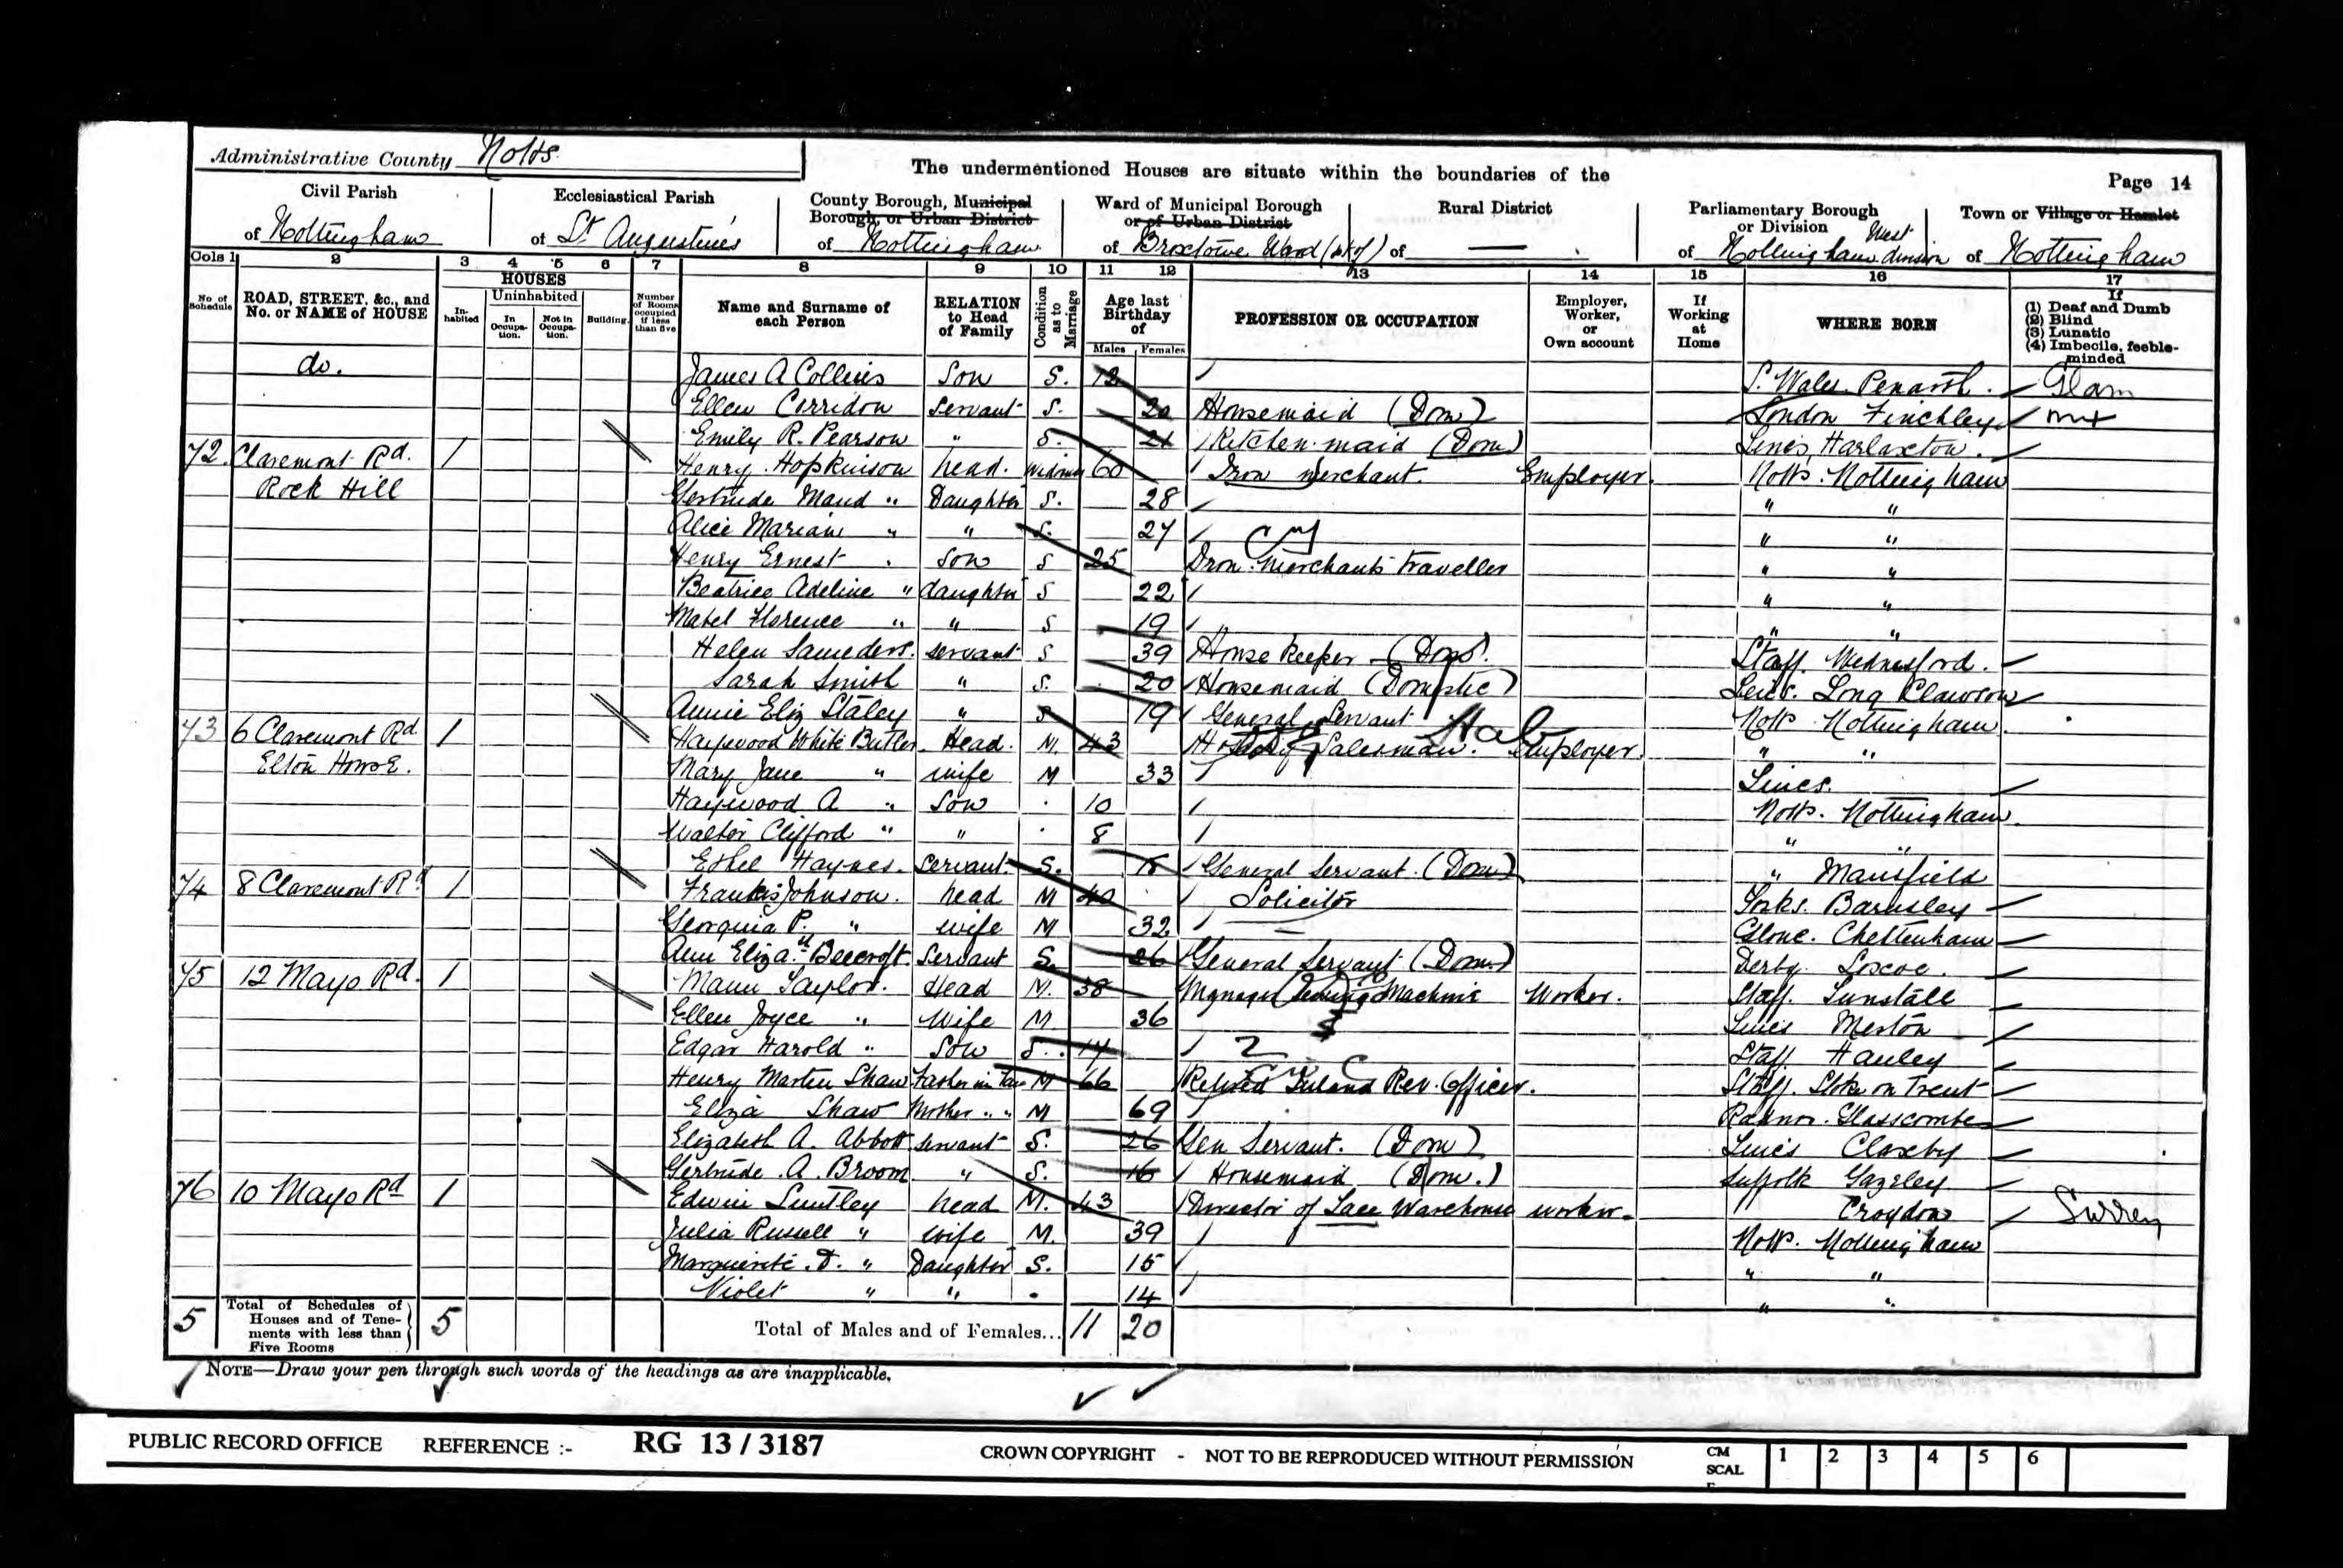 Administrative County Notts.
The undermentioned Houses are situate within the boundaries of the
Page 14
Civil Parish of Nottingham
Ecclesiastical Parish of St Augustine's
County Borough, Municipal Borough, or Urban District of Nottingham
Ward of Municipal Borough or of Urban District of Broxtowe Ward (pt of)
Rural District of —
Parliamentary Borough or Division of Nottingham West division
Town or Village or Hamlet of Nottingham
Cols 1 2 3 4 5 6 7 8 9 10 11 12 13 14 15 16 17
No of Schedule
ROAD, STREET, &c., and No. or NAME of HOUSE
HOUSES
Inhabited
Uninhabited
In Occupation.
Not in Occupation.
Building.
Number of Rooms occupied if less than five
Name and Surname of each Person
RELATION to Head of Family
Condition as to Marriage
Age last Birthday of
Males Females
PROFESSION OR OCCUPATION
Employer, Worker, or Own account
If Working at Home
WHERE BORN
If
(1) Deaf and Dumb
(2) Blind
(3) Lunatic
(4) Imbecile, feeble-minded
do. James A Collins Son S. 12 S. Wales. Penarth. Glam
Ellen Corridon Servant S. 20 Housemaid (Dom) London Finchley
Emily R. Pearson " S. 21 Kitchen-maid (Dom) Lincs, Harlaxton.
72 Claremont Rd. 1 Henry Hopkinson head. Widower 60 Iron Merchant. Employer. Notts. Nottingham
Rock Hill Gertrude Maud " Daughter S. 28 " "
Alice Marian " " S. 27 " "
Henry Ernest " Son S 25 Iron Merchants Traveller " "
Beatrice Adeline " daughter S 22 " "
Mabel Florence " " S 19 " "
Helen Saunders. servant S 39 House Keeper (Dom). Staff. Wednesford.
Sarah Smith " S. 20 Housemaid (Domestic) Leics. Long Clawson
Annie Eliz Staley " S 19 General Servant Notts Nottingham.
73 6 Claremont Rd 1 Haywood White Butler. Head. M. 43 Hosiery Salesman. Employer. " "
Elton House. Mary Jane " wife M 33 Lincs.
Haywood A " Son 10 Notts. Nottingham.
Walter Clifford " " 8 " "
Ethel Haynes. Servant S. General Servant. (Dom) " Mansfield
74 8 Claremont Rd 1 Francis Johnson. head M 40 Solicitor Yorks. Barnsley
Georgina P. " wife M 32 Glouc. Cheltenham
Ann Elizath Beecroft. Servant S. 26 General Servant (Dom.) Derby. Loscoe.
75 12 Mayo Rd. 1 Taylor. Head M. 38 Manager Sewing Machine Worker. Staff. Tunstall
Ellen Joyce " Wife M. 36 Lincs
Edgar Harold " Son S. 14 Staff. Hanley
Henry Martin Shaw Father in law M 66 Retired Inland Rev. Officer. Staff. Stoke on Trent
Eliza Shaw Mother " " M 69 Radnor. Glasscombe
Elizabeth A. Abbott servant S. 26 Gen Servant. (Dom) Lincs Claxby
Gertrude A. Broom " S. 16 Housemaid (Dom.) Suffolk Gazeley
76 10 Mayo Rd 1 Edwin Luntley head M. 43 Director of Lace Warehouse worker. " Croydon Surrey
Julia Russell " wife M. 39 Notts. Nottingham
Marguerite D. " Daughter S. 15 " "
Violet " " 14 " "
5 Total of Schedules of Houses and of Tenements with less than Five Rooms 5 Total of Males and of Females... 11 20
NOTE—Draw your pen through such words of the headings as are inapplicable.
PUBLIC RECORD OFFICE REFERENCE :- RG 13 / 3187 CROWN COPYRIGHT - NOT TO BE REPRODUCED WITHOUT PERMISSION CM SCALE 1 2 3 4 5 6